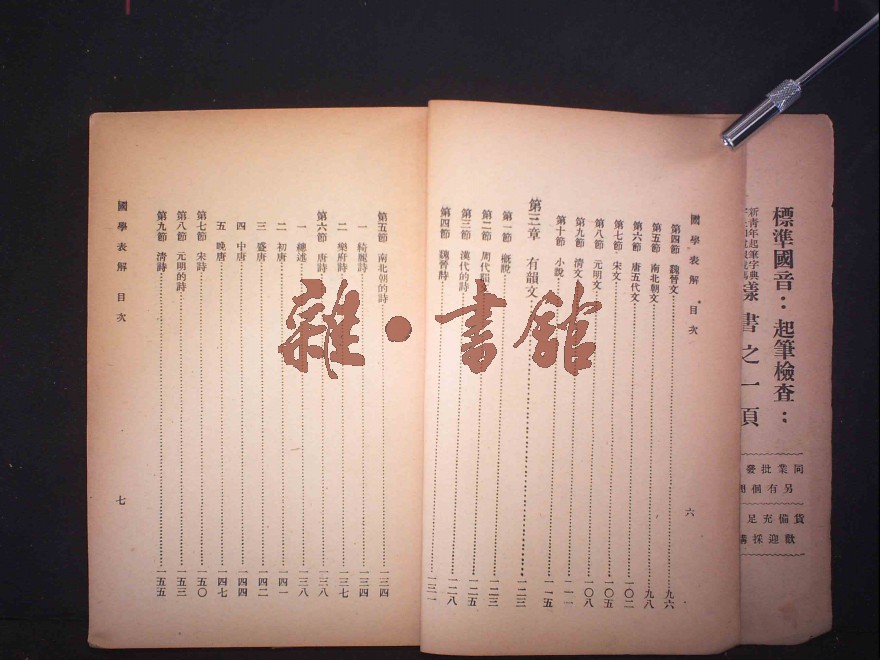 標準國音：起筆檢查：
新青年起筆字典
樣書之一頁
同業批發
另有個
貨備充足
歡迎採購
國學表解 目次
第四節 魏晉文 九六
第五節 南北朝文 九八
第六節 唐五代文 一〇二
第七節 宋文 一〇五
第八節 元明文 一〇八
第九節 清文 一一一
第十節 小說 一一五
第三章 有韻文 一二三
第一節 概說 一二三
第二節 周代 一二五
第三節 漢代的詩 一二八
第四節 魏晉詩 一三一
六
第五節 南北朝的詩 一三四
一 綺麗詩 一三四
二 樂府詩 一三七
第六節 唐詩 一三八
一 總述 一三八
二 初唐 一四一
三 盛唐 一四二
四 中唐 一四四
五 晚唐 一四七
第七節 宋詩 一五〇
第八節 元明的詩 一五三
第九節 清詩 一五五
國學表解 目次
七
雜·書館